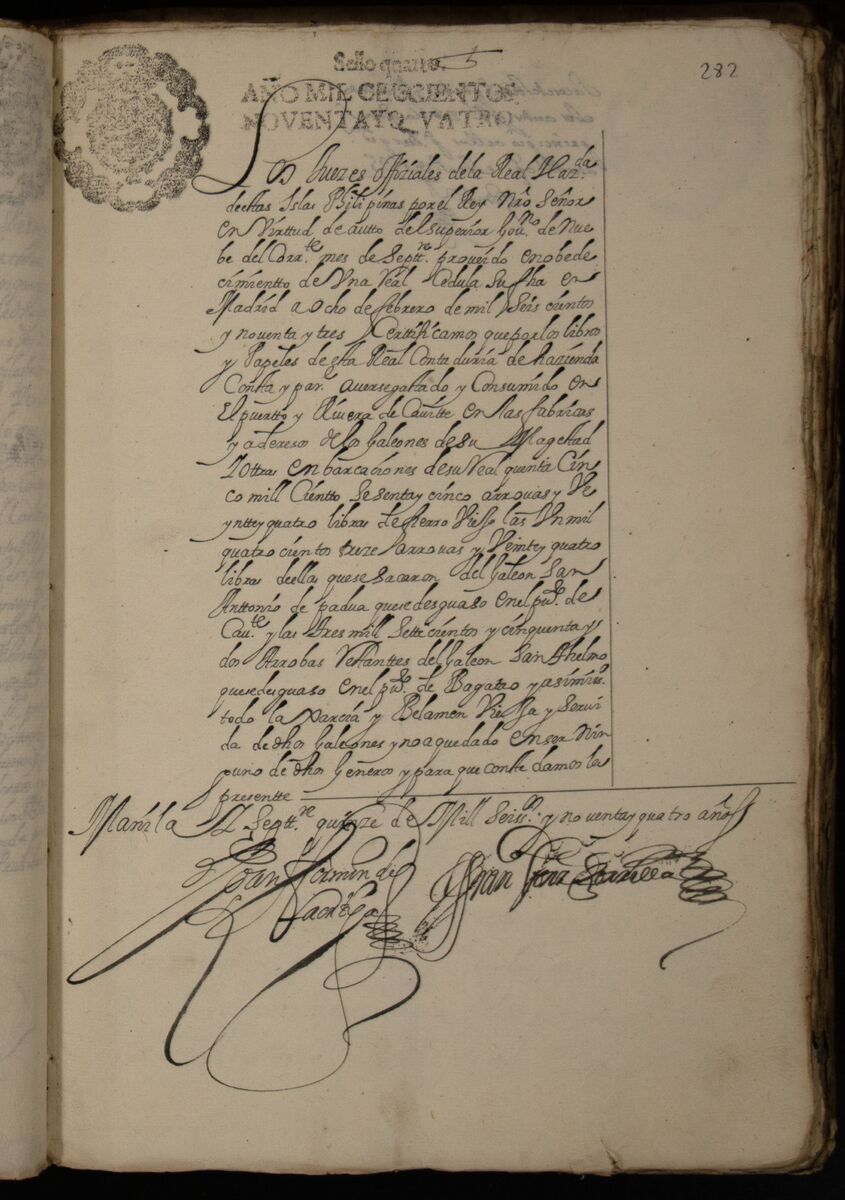 282
Sello quarto.
AÑO MIL
NOVENTA Y QVATRO
Los Juezes offiziales de la Real Haz.da
destas Islas Philipinas por el Rey Nro Señor
en Virttud de autto del superior Gou.no de Nue
be del Corr.te mes de Septt.re proueido en obede
cimientto de Vna Real Cedula su fha en
Madrid a ocho de febrero de mil seis cientos
y noventa y tres Certtificamos que por los libros
y Papeles de esta Real Contaduria de hazienda
Consta y par.e auerse gastado y Consumido en
El puertto y Riuera de Cauitte en las fabricas
y aderesos de los Galeones de su Magestad
Y ottras enbarcaciones de su Real quenta Cin
co mill Cientto sesenta y cinco arrouas y Ve
yntte y quatro libras de hierro Viejo las Vn mil
quatro cientos treze arrouas y Veinte y quatro
libras de ellas que se sacaron del Galeon San
Anttonio de padua que se desguaso en el pu.to de
Cau.te y las tres mill Sette cientos y cinquenta y
dos Arrobas Restanttes del Galeon San Thelmo
que se desguaso en el pu.to de Bagatao y asimis.o
todo la xarcia y Belamen Viejo y serui
da de dhos Galeones y no a quedado en ser Nin
guno de dhos Generos y para que conste damos la
presentte
Manila Y Septt.re quinze de Mill Seis.s y noventa y quatro años
Joan
Fran